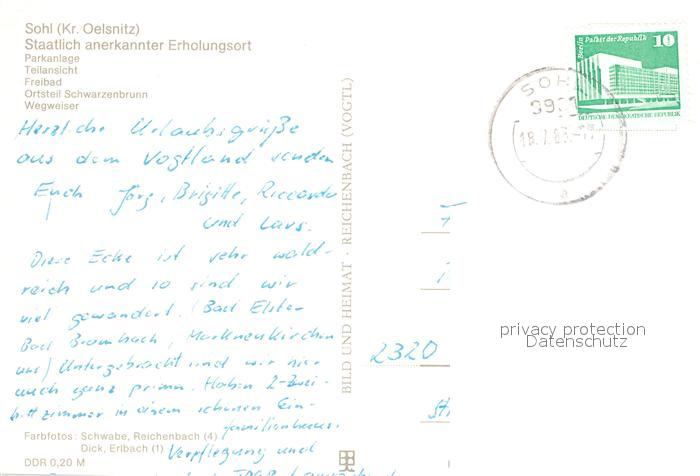 Sohl (Kr. Oelsnitz)
Staatlich anerkannter Erholungsort
Parkanlage
Teilansicht
Freibad
Ortsteil Schwarzenbrunn
Wegweiser
Herzliche Urlaubsgrüße
aus dem Vogtland senden
Euch Jörg, Brigitte, Riccardo
und Lars.
Diese Ecke ist sehr wald-
reich und so sind wir
viel gewandert. (Bad Elster
Bad Brambach, Markneukirchen
usw) Untergebracht sind wir hier
auch ganz prima. Haben 2-Zwei-
bettzimmer in einem schönen Ein-
familienhaus.
Verpflegung und
Farbfotos: Schwabe, Reichenbach (4)
Dick, Erlbach (1)
DDR 0,20 M
BILD UND HEIMAT · REICHENBACH (VOGTL)
Berlin Palast der Republik 10
DEUTSCHE DEMOKRATISCHE REPUBLIK
SOHL
a
2320
privacy protection
Datenschutz